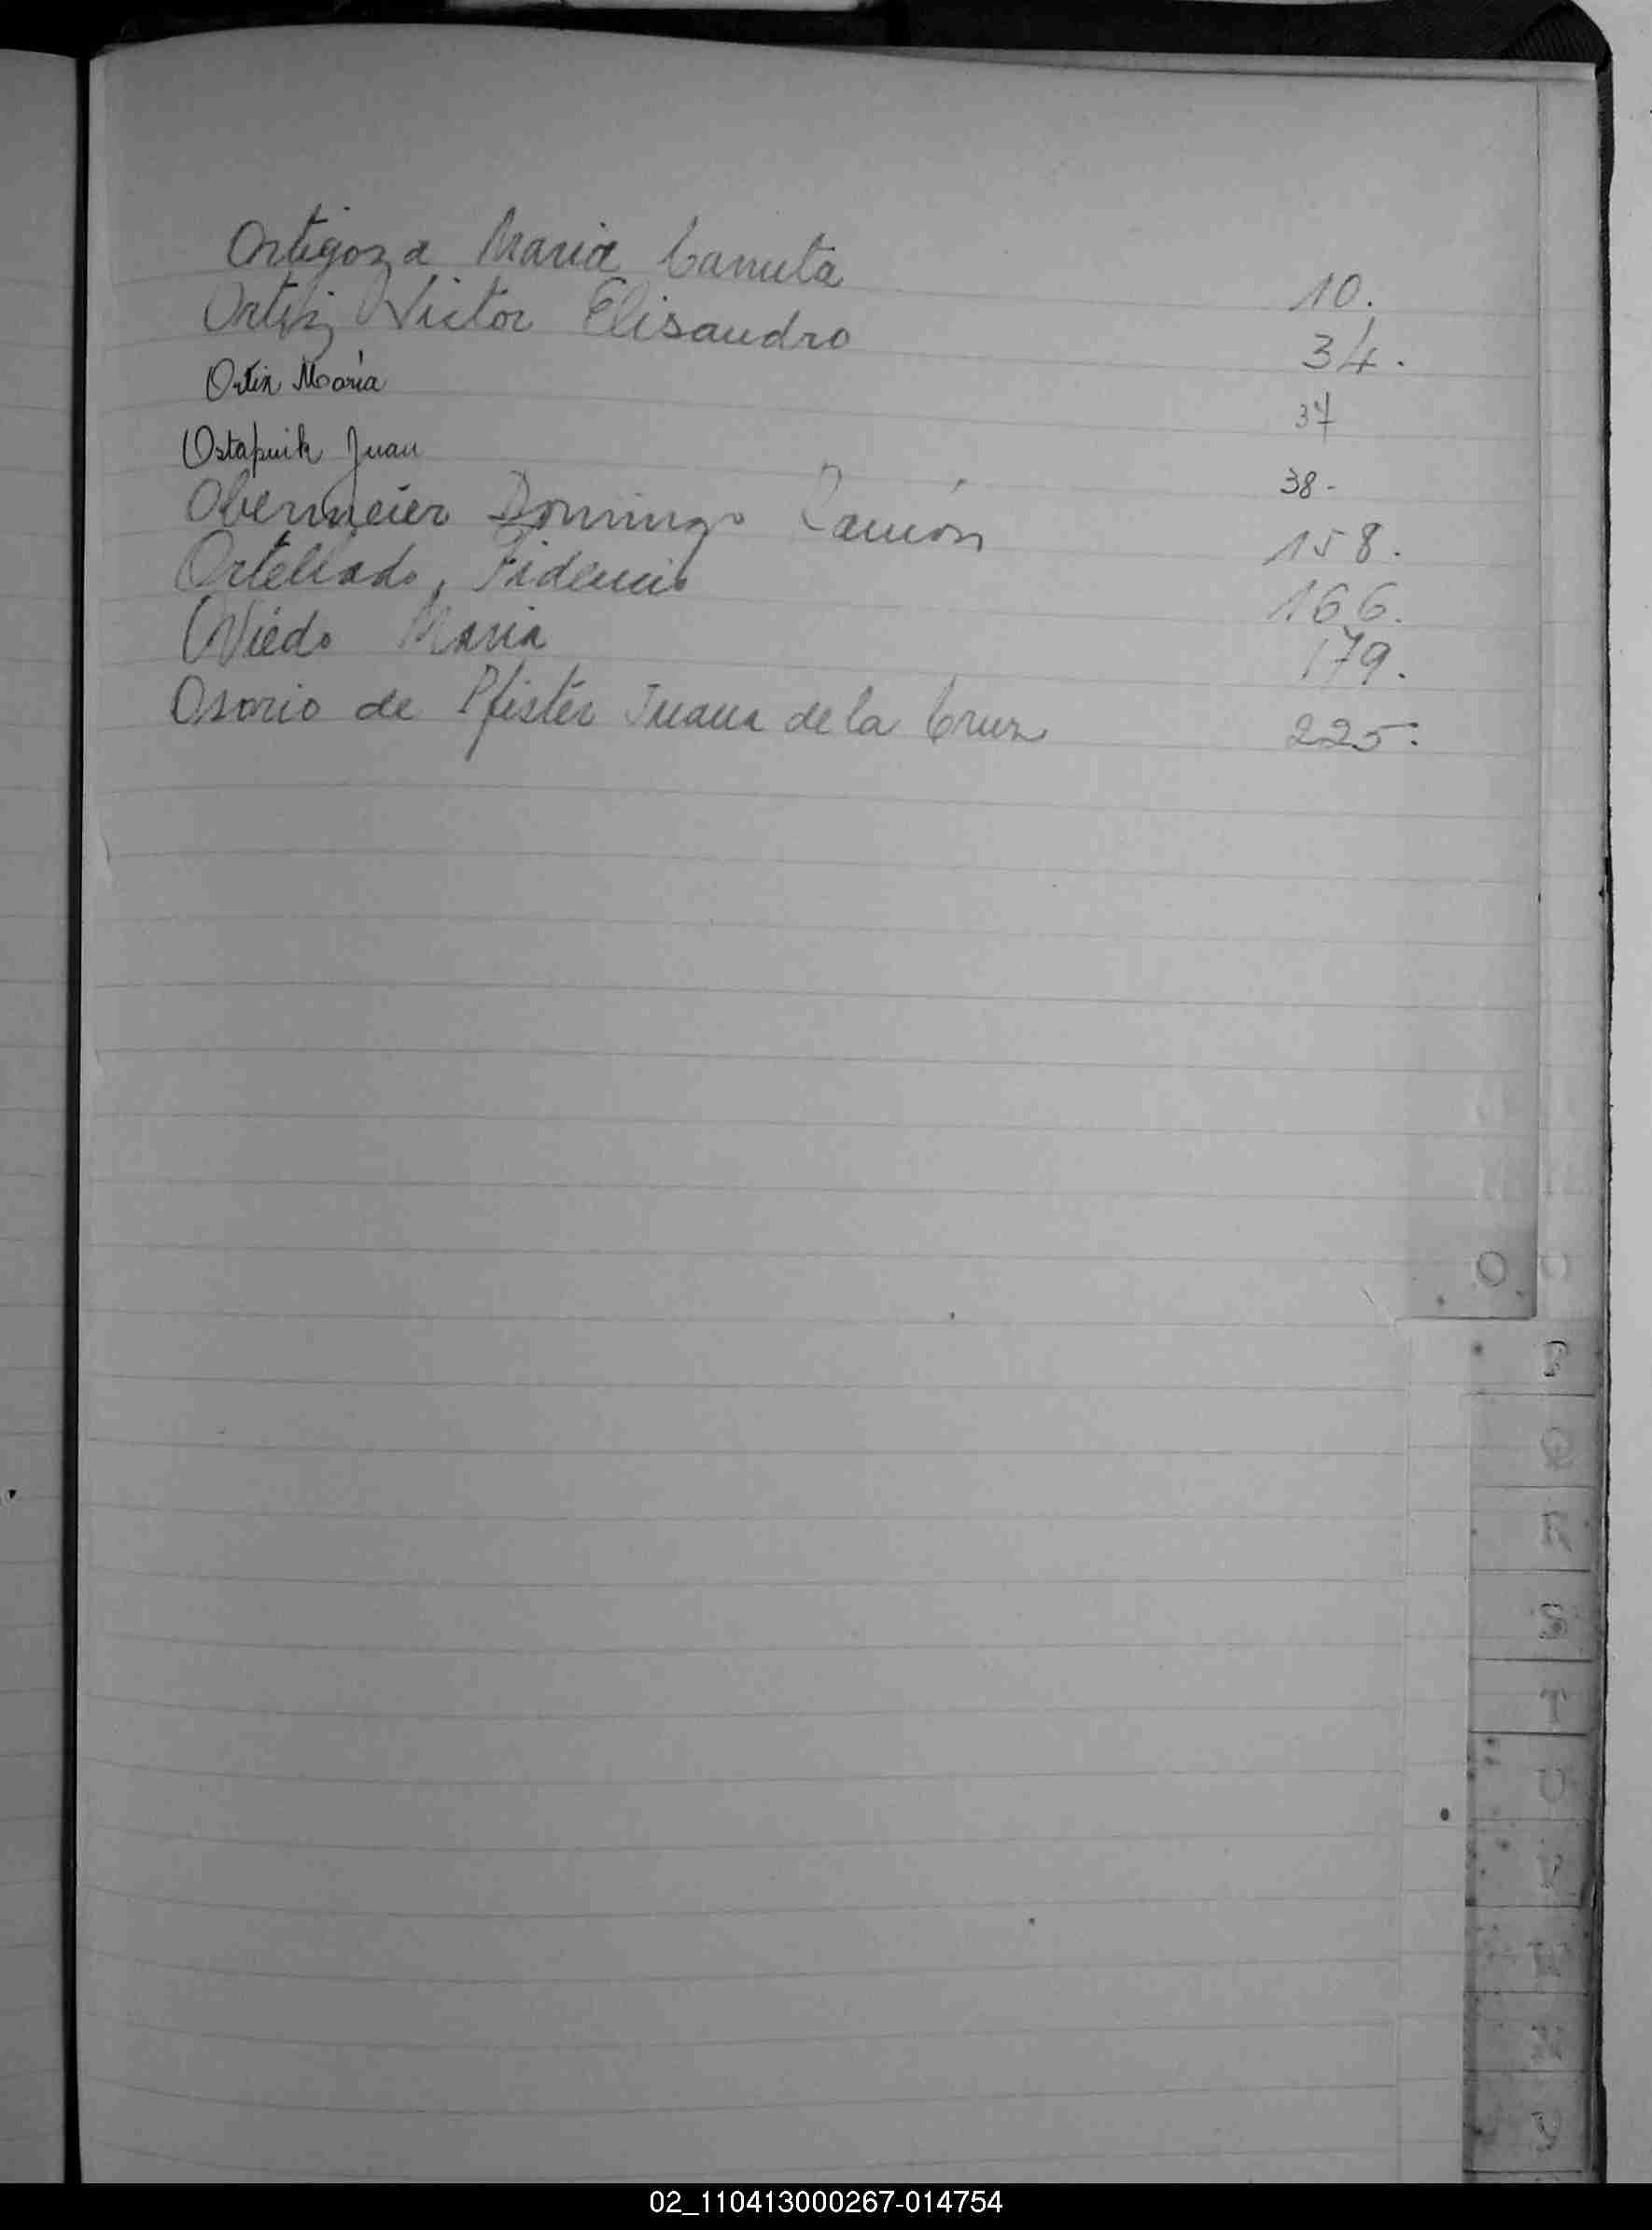 Ortigoza Maria Canuta 10.
Ortiz Victor Elisandro 34.
Ortiz María 37
Ostapuik Juan 38-
Obermeier Domingo Ramón 158.
Ortellado, Fidencio 166.
Oviedo Maria 179.
Osorio de Pfister Juana de la Cruz 225.
O
P
Q
R
S
T
U
V
02_110413000267-014754